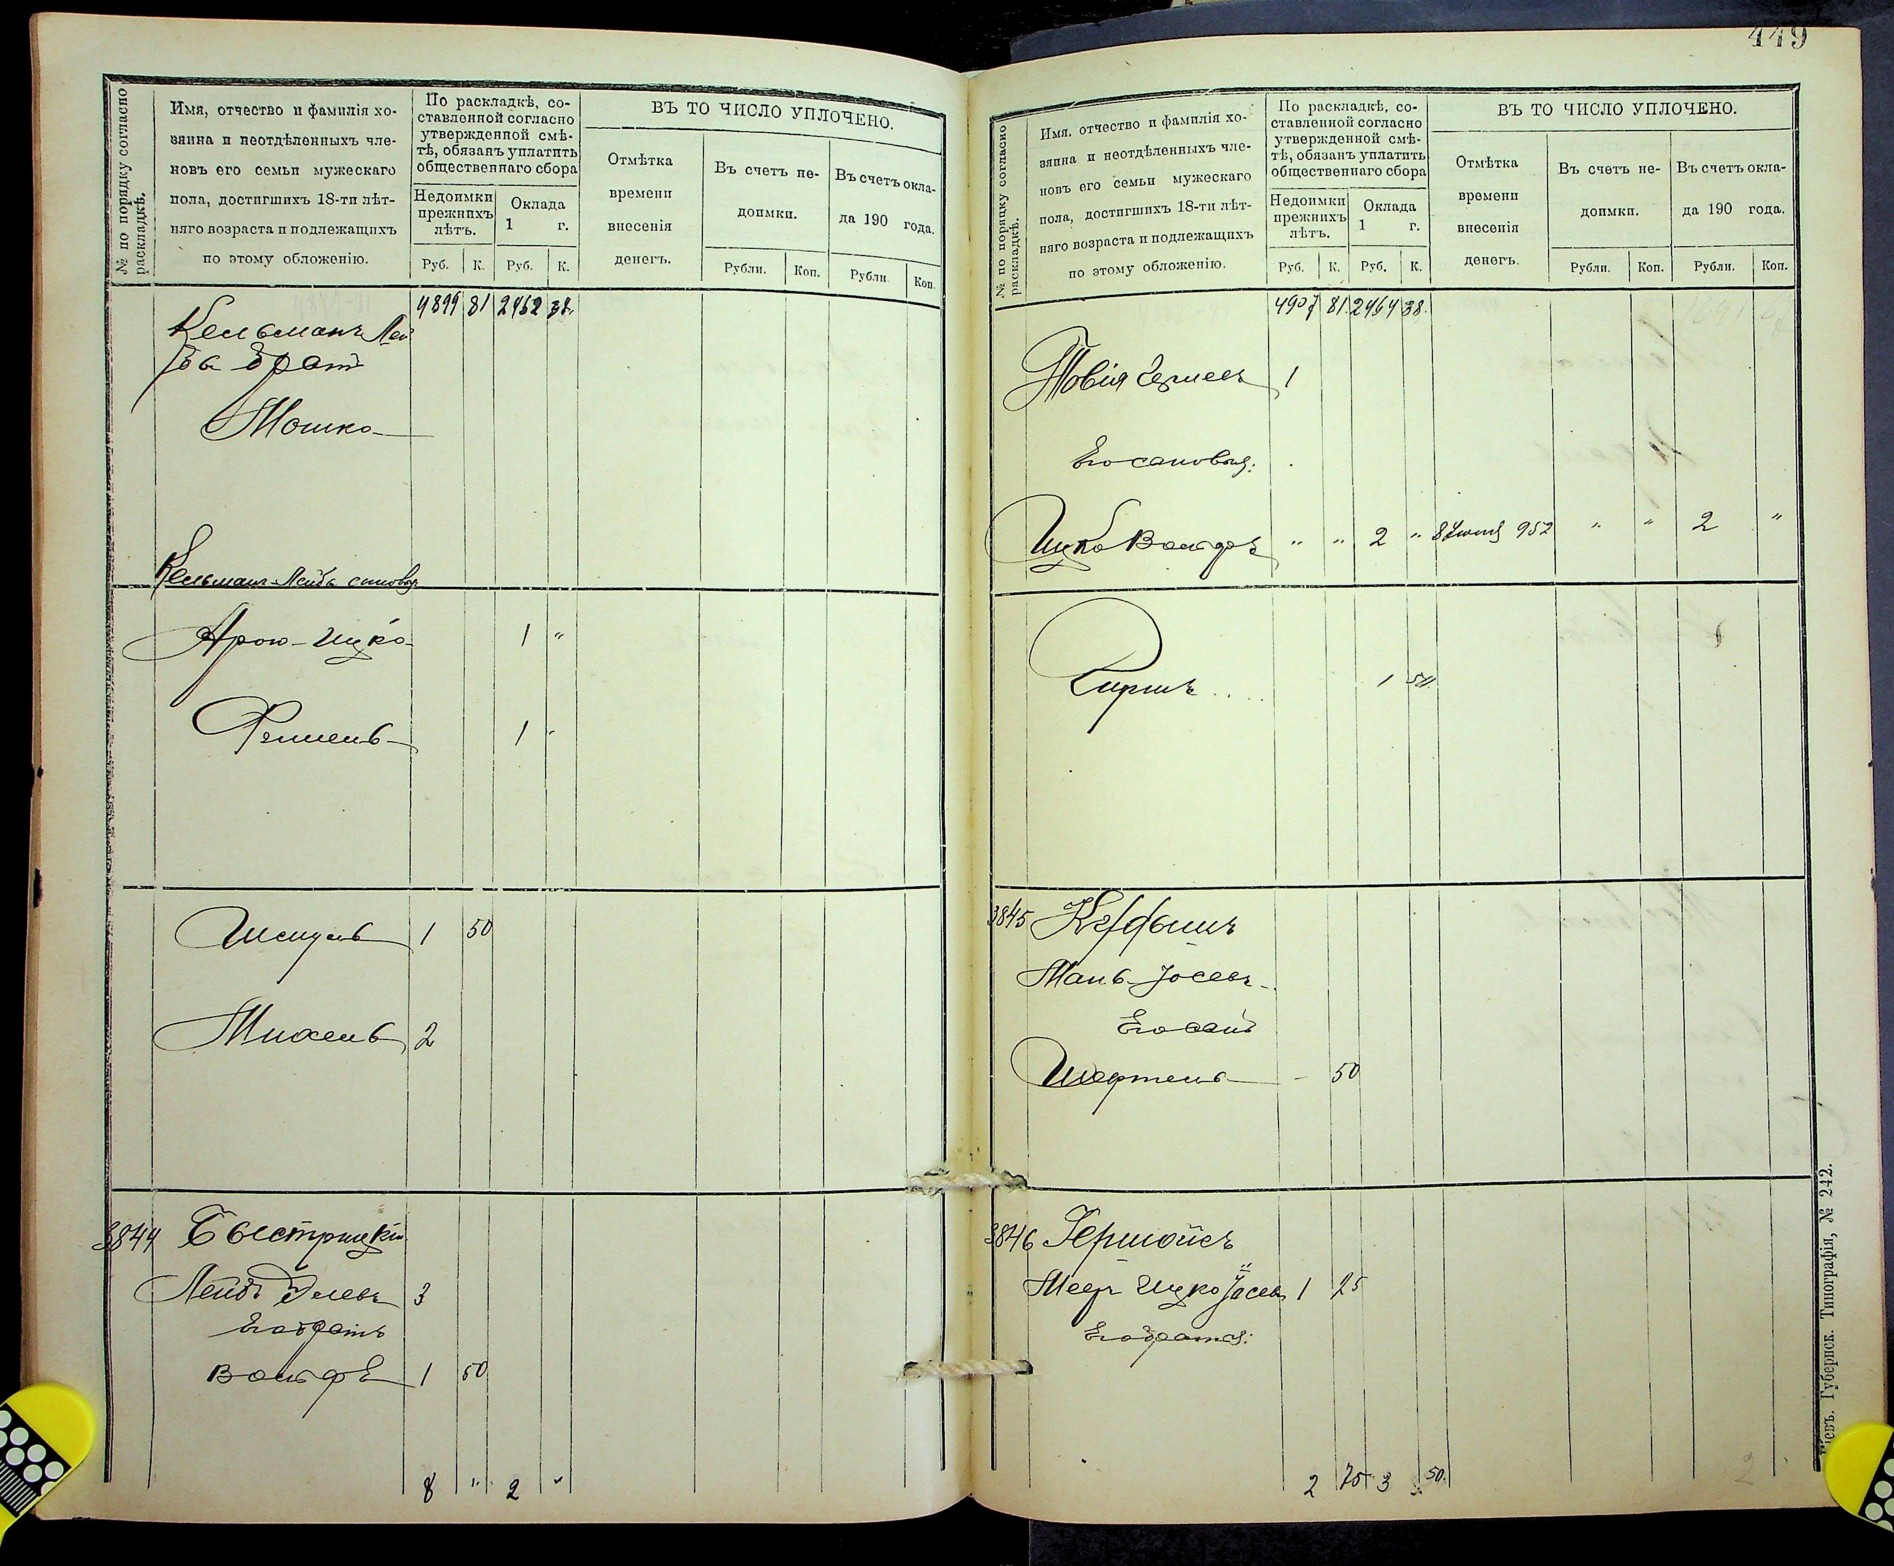 № по порядку согласно
раскладкѣ.
Имя, отчество и фамилія хо-
зяина и неотдѣленныхъ чле-
новъ его семьи мужескаго
пола, достигшихъ 18-ти лѣт-
няго возраста и подлежащихъ
по этому обложенію.
По раскладкѣ, со-
ставленной согласно
утвержденной смѣ-
тѣ, обязанъ уплатить
общественнаго сбора
Недоимки
прежнихъ
лѣтъ.
Оклада
1 г.
Руб. К. Руб. К.
ВЪ ТО ЧИСЛО УПЛОЧЕНО.
Отмѣтка
времени
внесенія
денегъ.
Въ счетъ не-
доимки.
Рубли. Коп.
Въ счетъ окла-
да 190 года.
Рубли Коп.
4899 81 2462 38
Кельманъ Лей
ба братъ
Мошко
Кельманъ-Лейбы сыновья
Арон-Ицко 1 "
Фишель 1 "
1 50
Михель 2
3844 Быстрицкій
Лейбъ Элевъ 3
Его братъ
Вольфъ 1 50
8 " 2 "
449
№ по порядку согласно
раскладкѣ.
Имя, отчество и фамилія хо-
зяина и неотдѣленныхъ чле-
новъ его семьи мужескаго
пола, достигшихъ 18-ти лѣт-
няго возраста и подлежащихъ
по этому обложенію.
По раскладкѣ, со-
ставленной согласно
утвержденной смѣ-
тѣ, обязанъ уплатить
общественнаго сбора
Недоимки
прежнихъ
лѣтъ.
Оклада
1 г.
Руб. К. Руб. К.
ВЪ ТО ЧИСЛО УПЛОЧЕНО.
Отмѣтка
времени
внесенія
денегъ.
Въ счетъ не-
доимки.
Рубли. Коп.
Въ счетъ окла-
да 190 года.
Рубли. Коп.
4907 81 2464 38
Товія 1
Его сыновья:
Ицко Вольфъ " " 2 " 952 " " 2 "
Гиршъ 1 50
3845
Іосевъ
Его сынъ
50
3846
Меер Ицко Іосев 1 25
Его братья:
2 75 3 50
Кіевъ. Губернск. Типографія, № 242.